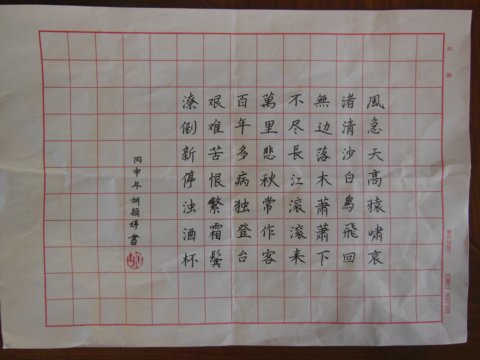 風急天高猿嘯哀
渚清沙白鳥飛回
無边落木蕭蕭下
不尽長江滚滚来
萬里悲秋常作客
百年多病独登台
艰难苦恨繁霜鬓
潦倒新停浊酒杯
丙申年 胡 書